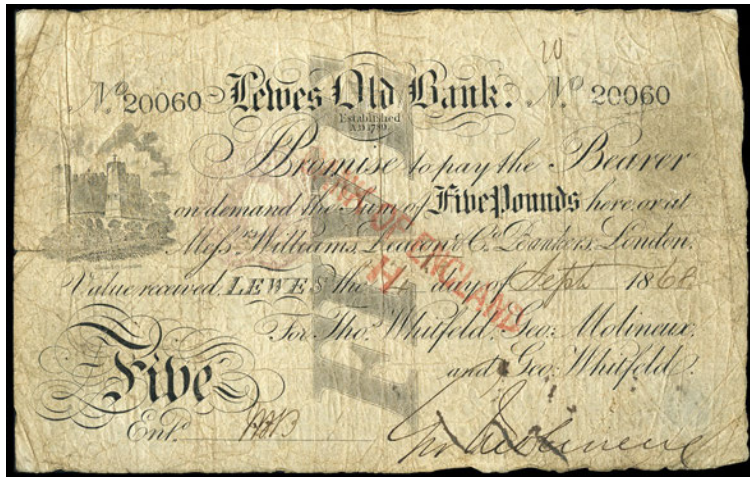 20
No 20060 Lewes Old Bank. No 20060
Established
A.D. 1789.
I Promise to pay the Bearer
on demand the Sum of Five Pounds here, or at
Messrs Williams, Deacon & Co. Bankers, London.
Value received, LEWES, the 4 day of Septr 1868
For Thos. Whitfeld, Geo: Molineux,
and Geo: Whitfeld.
Five
Entd.
FIVE
BANK OF ENGLAND
H